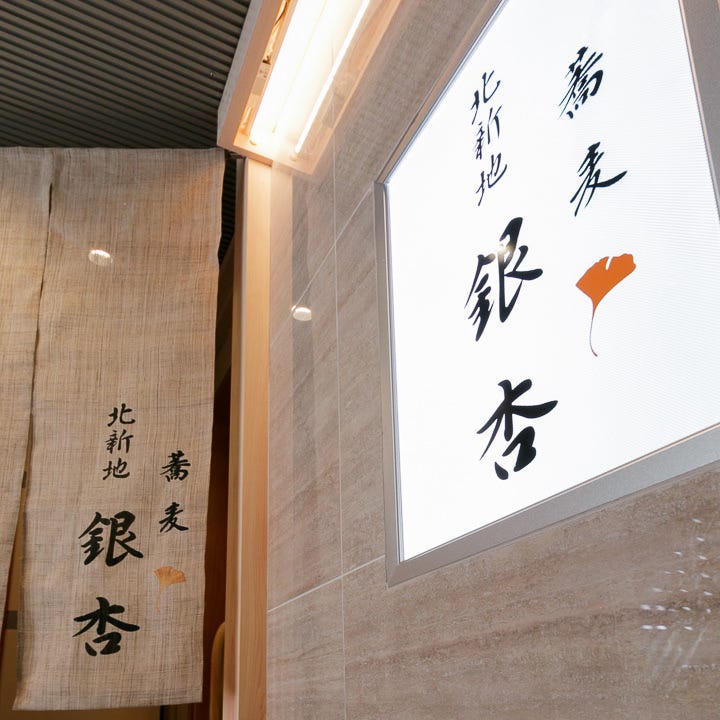 蕎麦
北新地
銀杏
蕎麦
北新地
銀杏